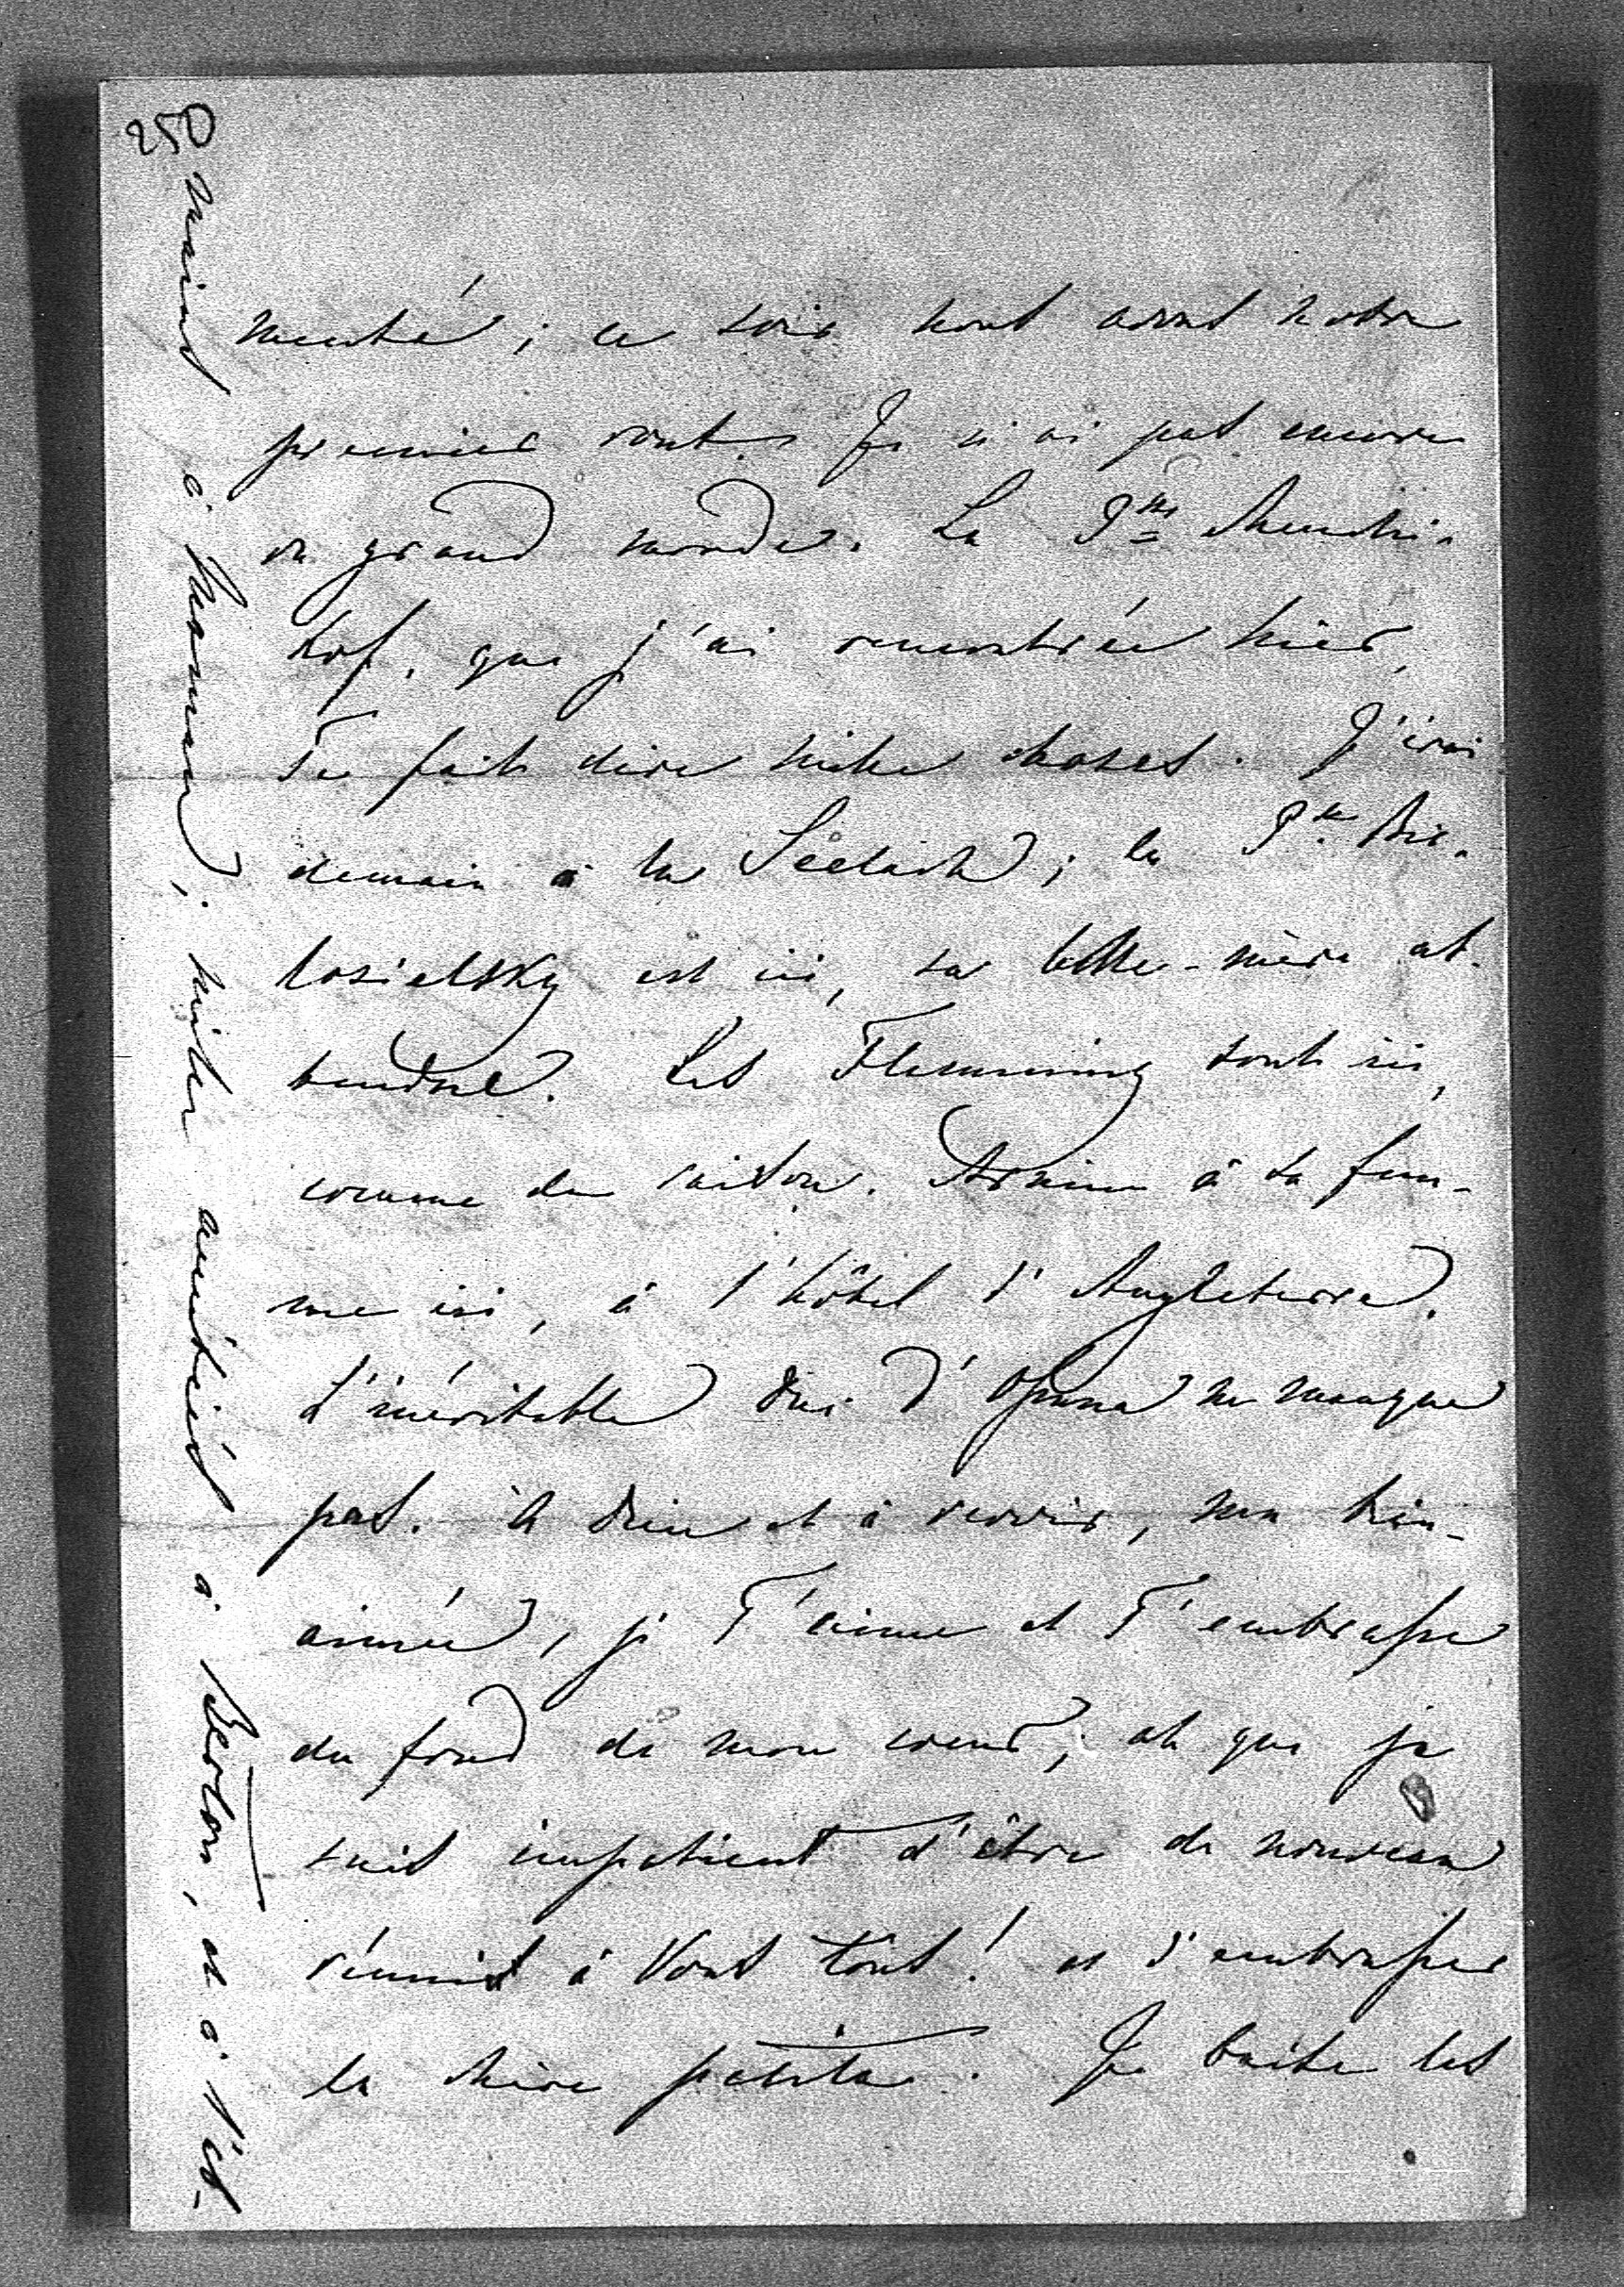 250
menté; ce soir nous avons notre
premier rout. Je n'ai pas encore
vu grand monde. La Psse Menchi-
kof, que j'ai rencontrée hier,
Te fait dire mille choses. J'irai
demain à la Seelach; la Psse Bié-
losielsky est ici, sa belle-mère at-
tendue. Les Flemming sont ici,
comme de raison. Arnim à sa fem-
me ici, à l'hôtel d'Angleterre.
L'inévitable duc d'Ossuna ne manque
pas. A Dieu et à revoir, ma bien-
aimée, je T'aime et T'embrasse
du fond de mon cœur; ah que je
suis impatient d'être de nouveau
réunis à Vous tous! et d'embrasser
la chère petite. Je baise les
mains à Maman; mille amitiés à Berton, et à l'es-